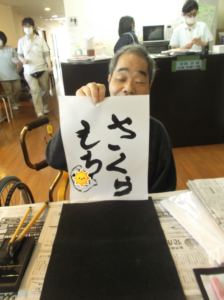 さくら
もち